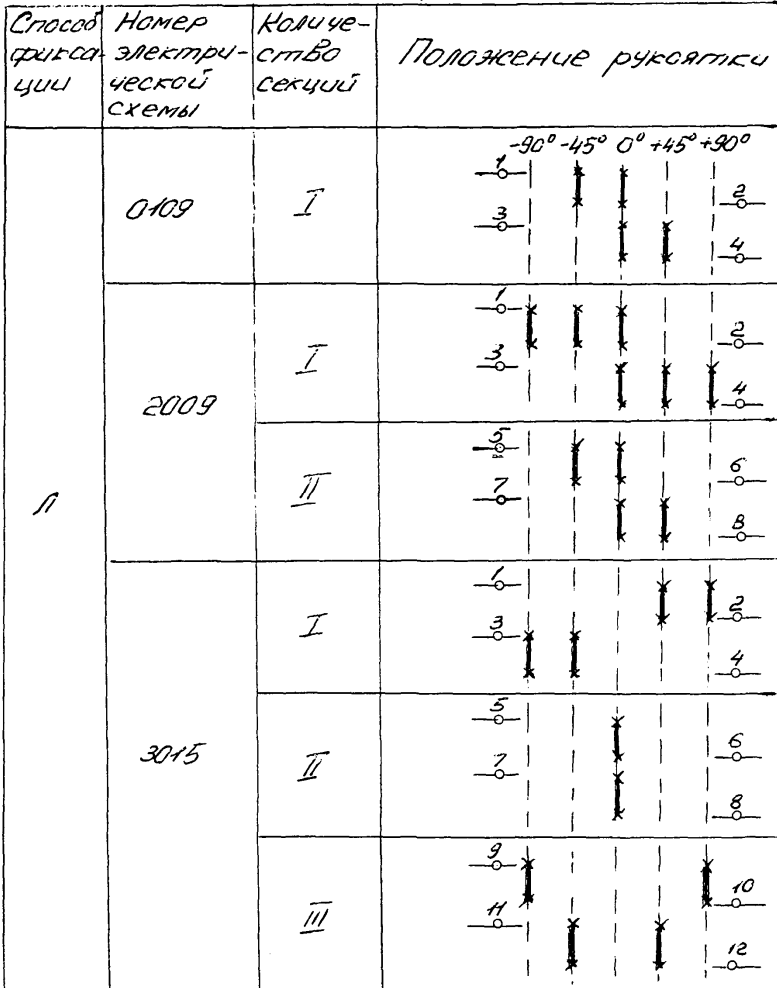 Способ фикса- ции
Номер электри- ческой схемы
Количе- ство секций
Положение рукоятки
-90° -45° 0° +45° +90°
Л
0109
I
1
2
3
4
2009
I
1
2
3
4
II
5
6
7
8
3015
I
1
2
3
4
II
5
6
7
8
III
9
10
11
12